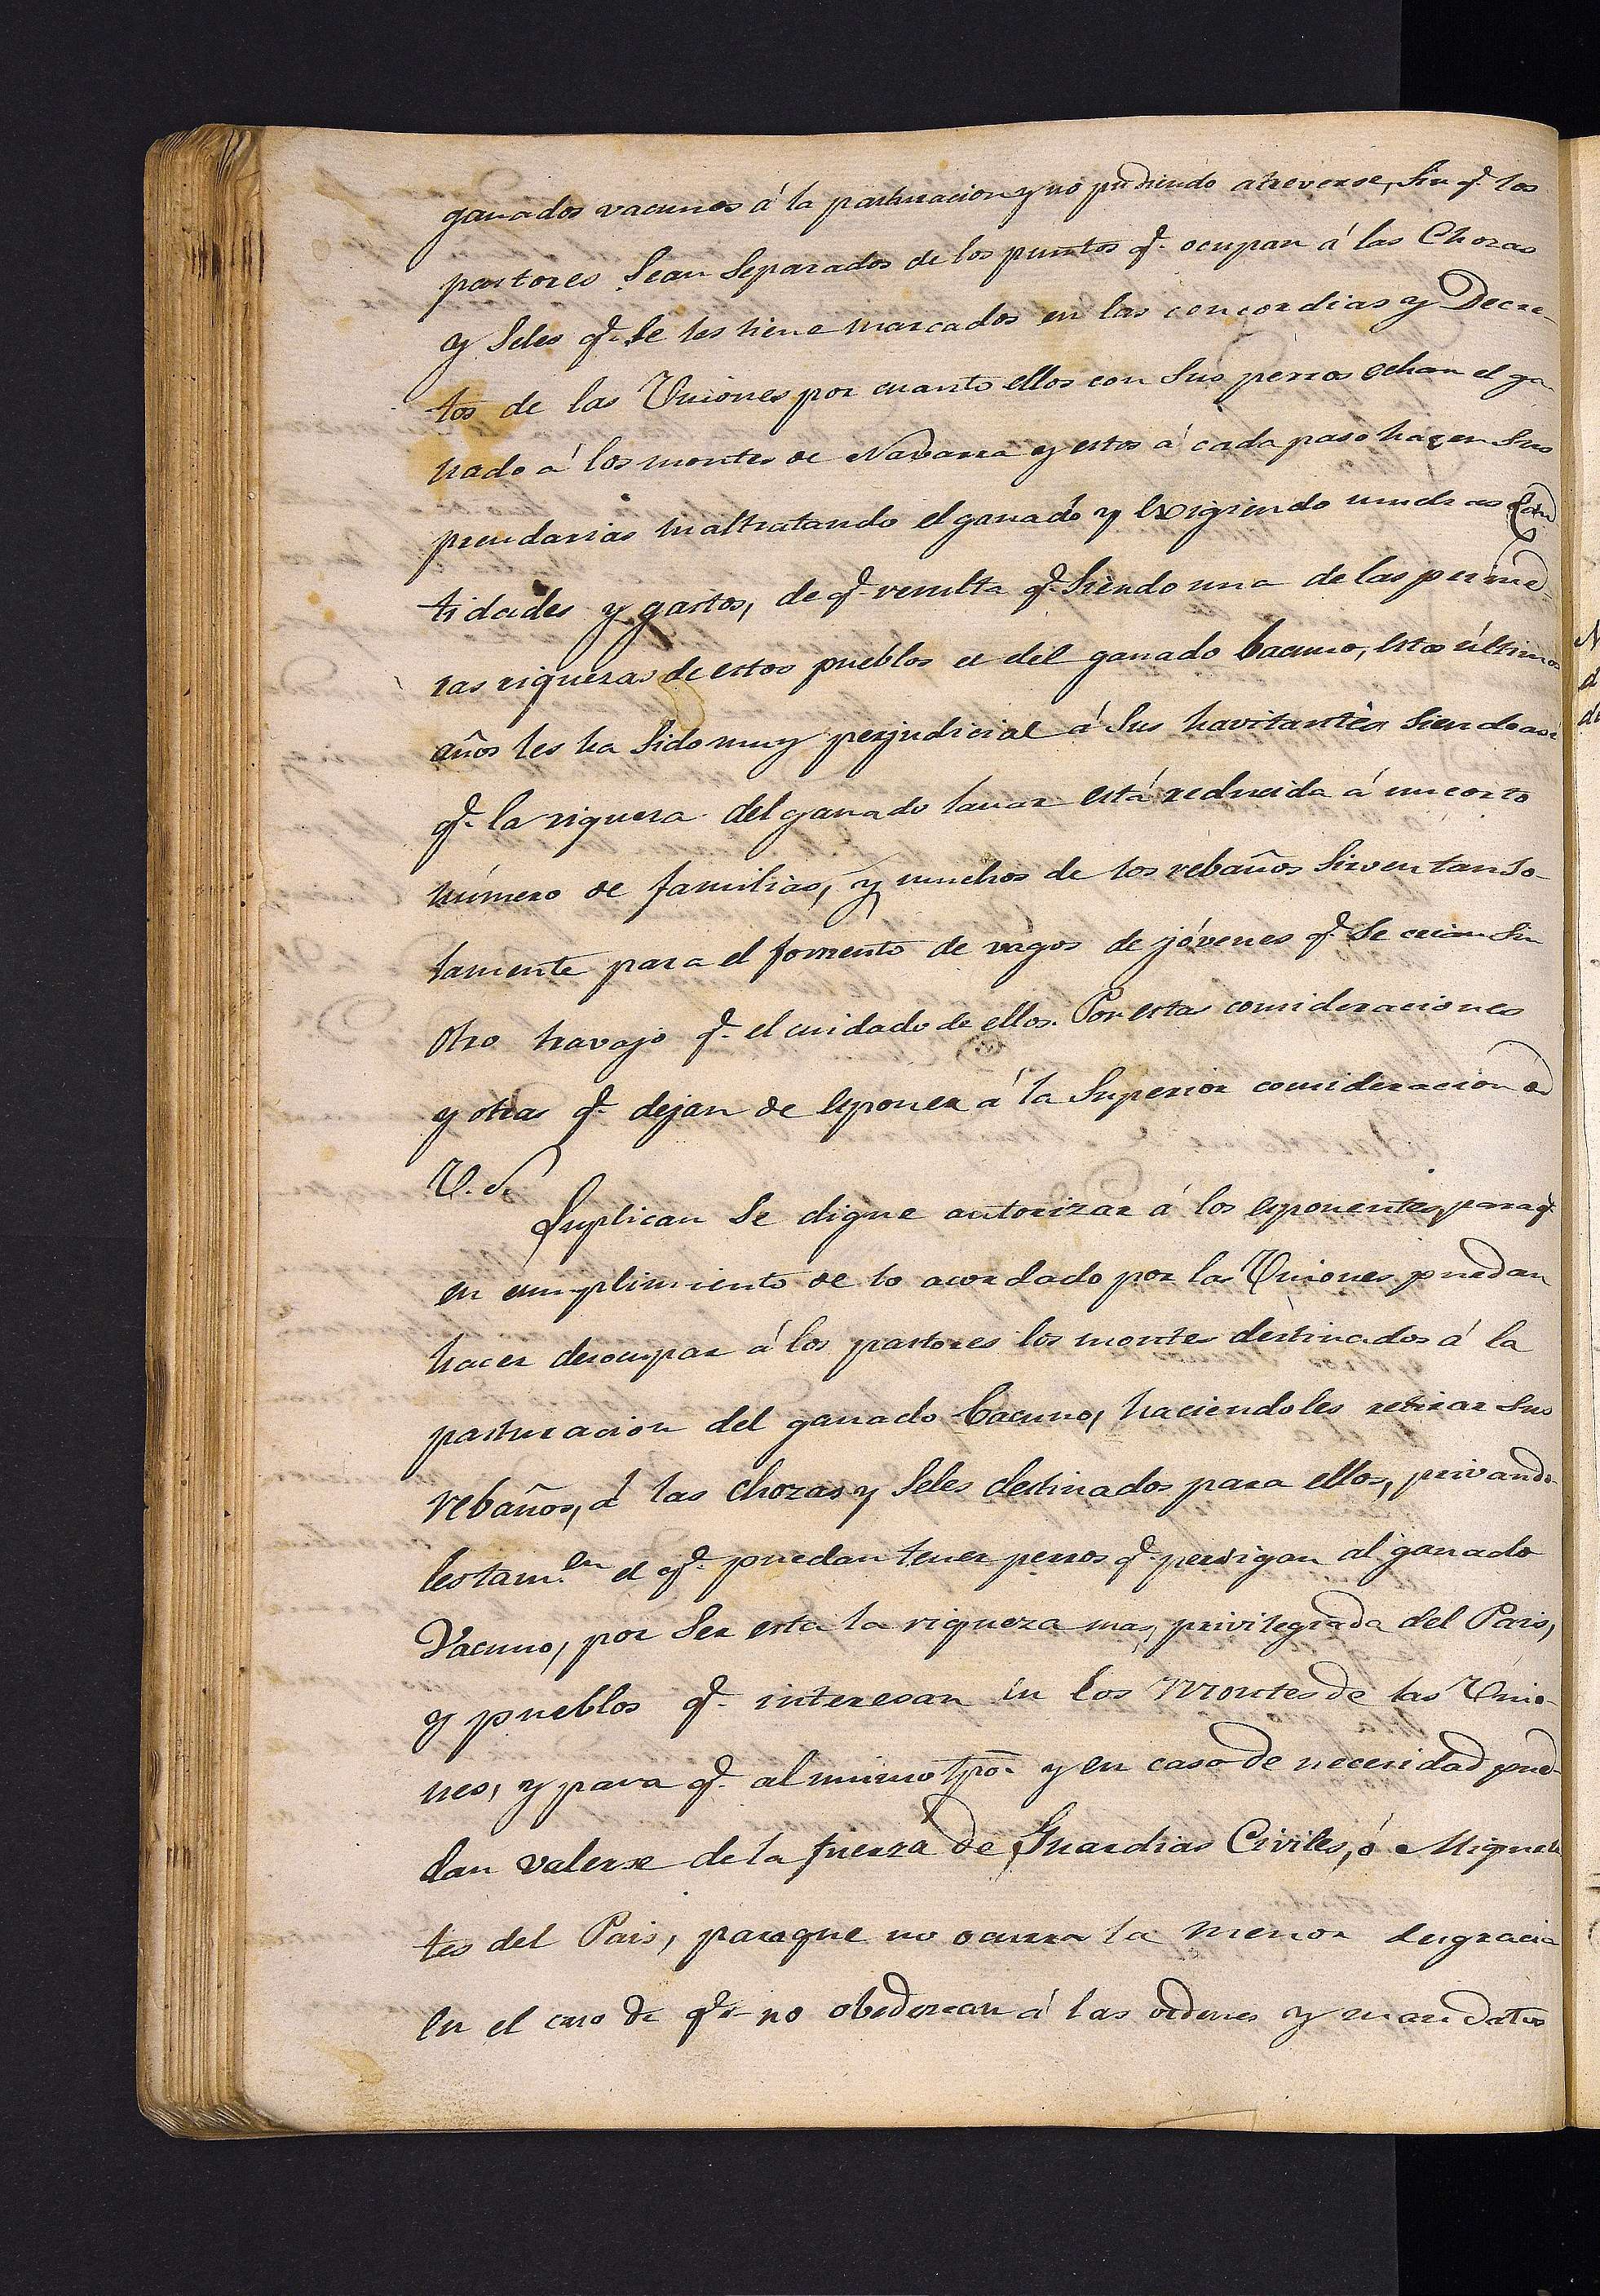 ganados vacunos á la pasturacion y no pudiendo atreverse, sin q.e los
pastores sean separados de los puntos q.e ocupan á las Chozas
y seles q.e se les tiene marcados en las concordias y Decre-
tos de las Uniones por cuanto ellos con sus perros echan el ga-
nado á los montes de Navarra y estos á cada paso hacen sus
prendarias maltratando el ganado y exigiendo muchas can
tidades y gastos, de q.e resulta q.e siendo una de las prime-
ras riquezas de estos pueblos el del ganado bacuno, estos últimos
años les ha sido muy perjudicial á sus havitantes siendo asi
q.e la riqueza del ganado lanar está reducida á un corto
número de familias, y muchos de los rebaños sirven tan so-
lamente para el fomento de vagos de jóvenes q.e se crian sin
otro travajo q.e el cuidado de ellos. Por estas consideraciones
y otras q.e dejan de esponer á la Superior consideracion de
V. S.
Suplican se digne autorizar á los esponentes, para q.e
en cumplimiento de lo acordado por las Uniones puedan
hacer desocupar á los pastores los montes destinados á la
pasturacion del ganado bacuno, haciendoles retirar sus
rebaños, á las chozas y seles destinados para ellos, privando
les tam.en el q.e puedan tener perros q.e persigan al ganado
Vacuno, por ser esta la riqueza mas privilegiada del Pais,
y pueblos q.e interesan en los Montes de las Unio-
nes, y para q.e al mismo tpo. y en caso de necesidad pue-
dan valerse de la fuerza de Guardias Civiles, ó Miquele
tes del Pais, paraque no ocurra la menor desgracia
en el caso de q.e no obedezcan á las ordenes y mandatos